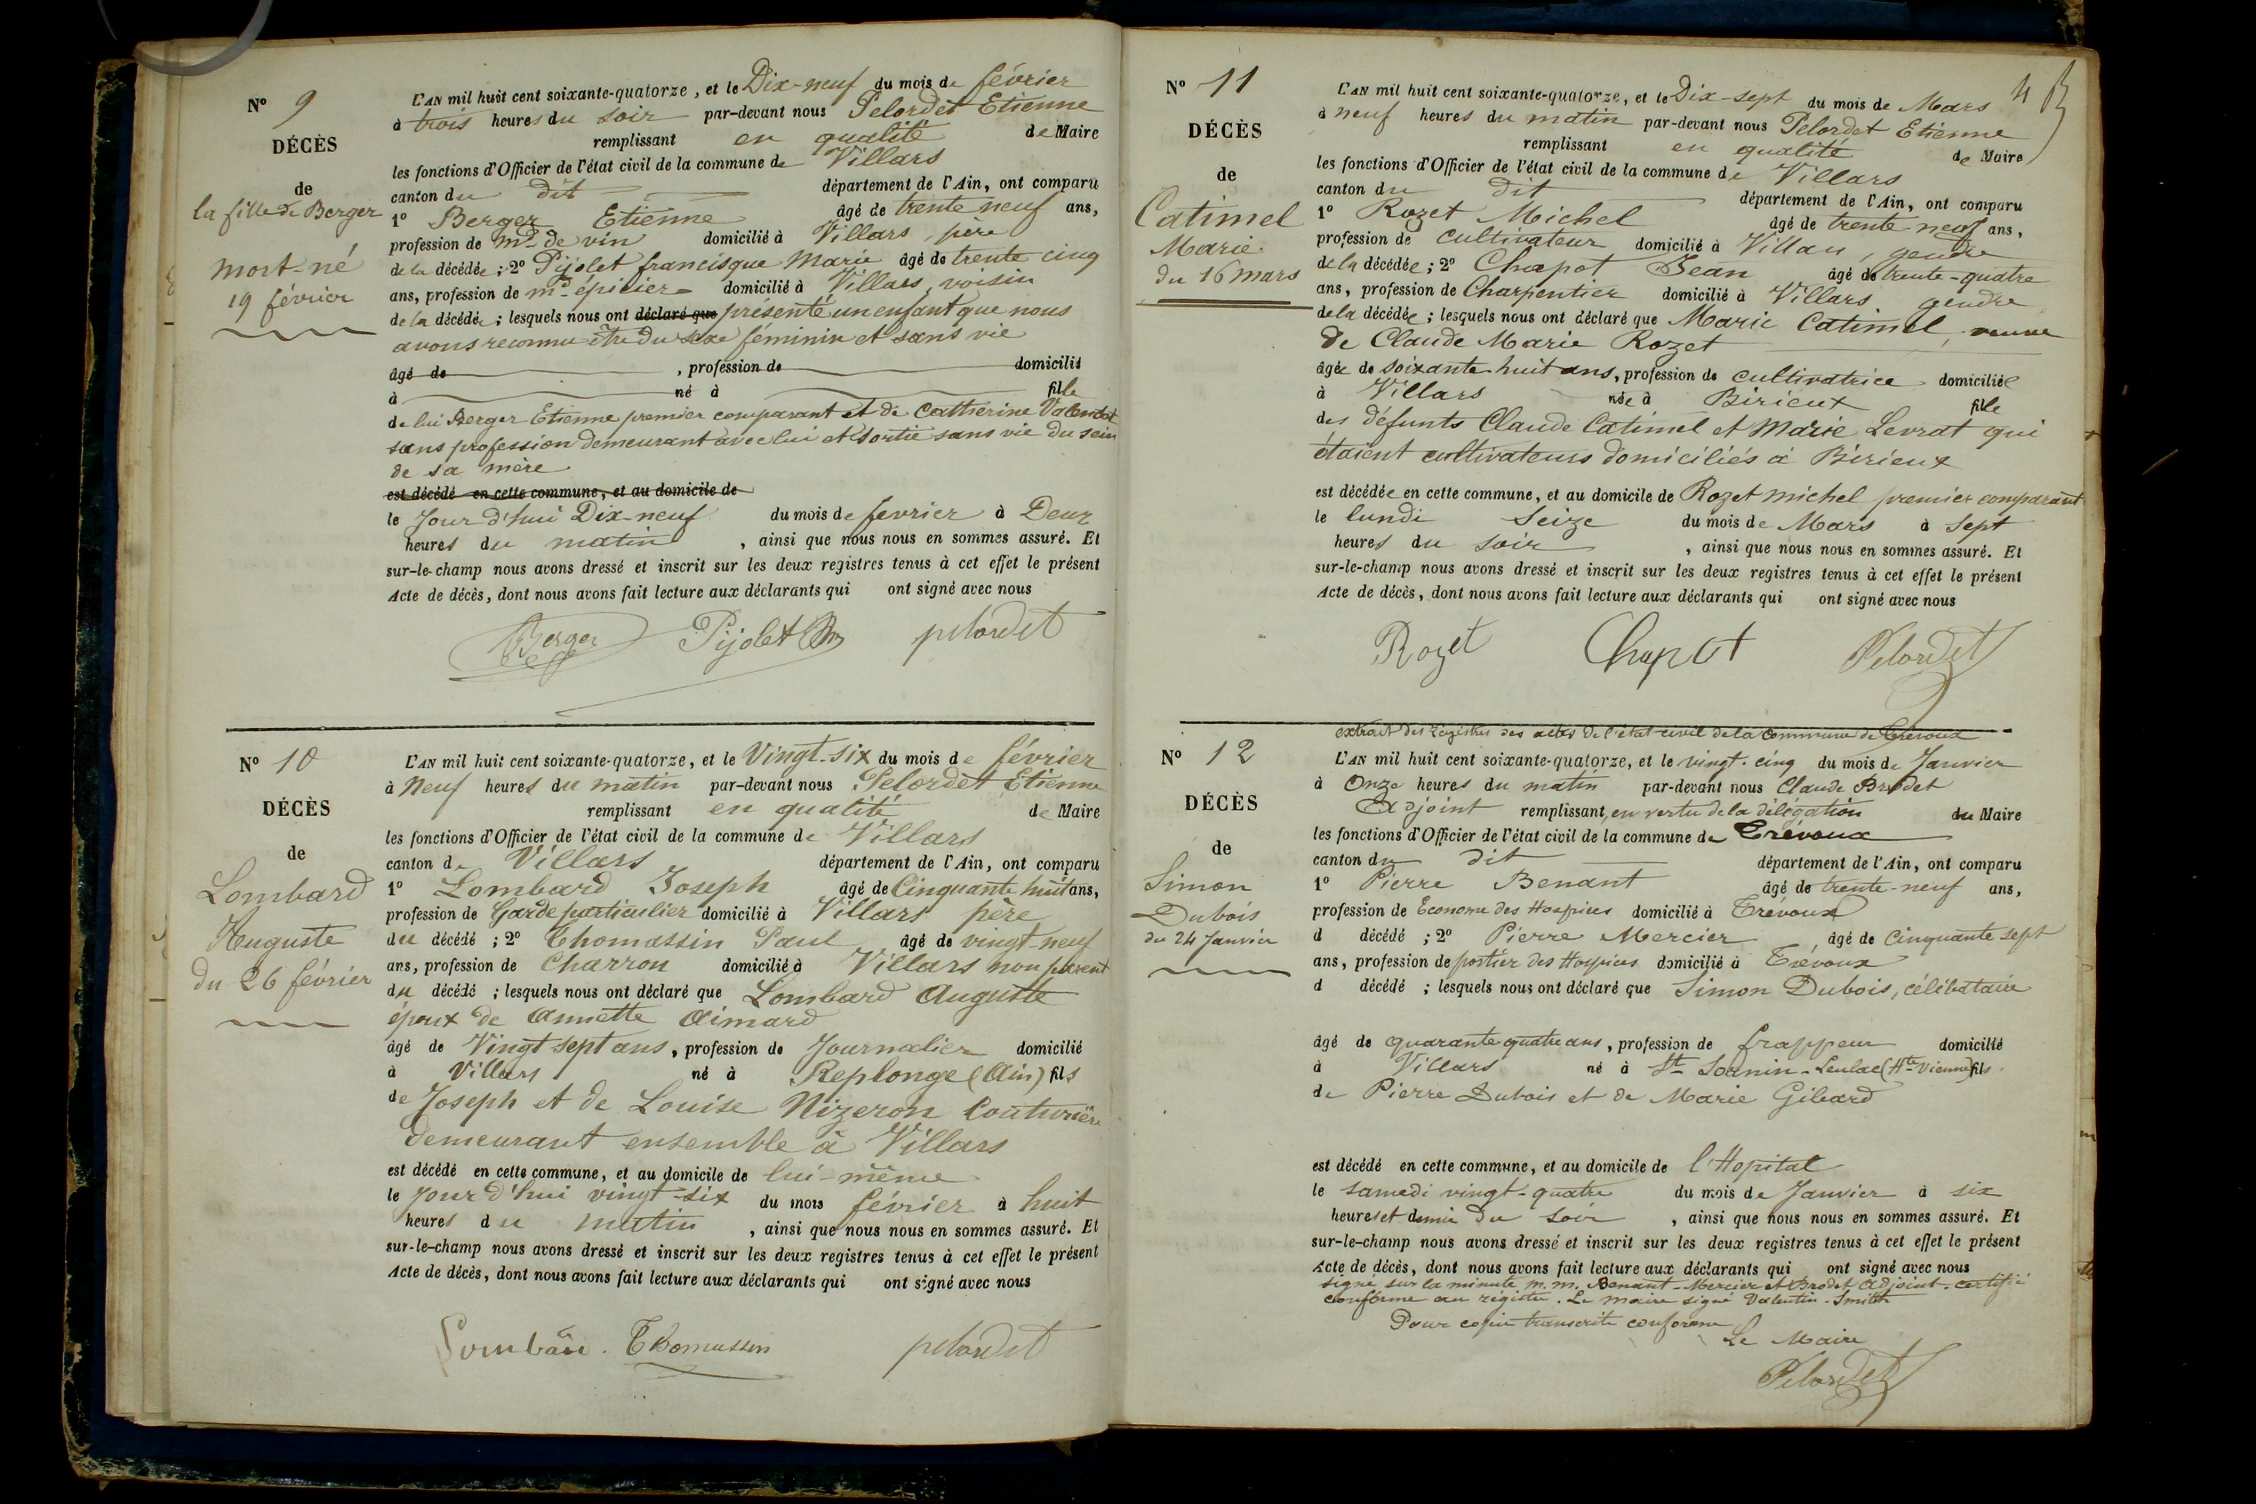 N° 9
DÉCÈS
de
la fille de Berger
mort-né
19 février
L'AN mil huit cent soixante-quatorze, et le Dix-neuf du mois de février
à trois heures du soir par-devant nous Pelordet Etienne
remplissant en qualité de Maire
les fonctions d'Officier de l'état civil de la commune de Villars
canton du dit département de l'Ain, ont comparu
1° Berger Etienne âgé de trente neuf ans,
profession de md de vin domicilié à Villars, père
de la décédée ; 2° Pijolet francisque Marie âgé de trente cinq
ans, profession de md épicier domicilié à Villars, voisin
de la décédée ; lesquels nous ont déclaré que présenté un enfant que nous
avons reconnu être du sexe féminin et sans vie
âgé de , profession de domicilié
à né à fille
de lui Berger Etienne premier comparant et de Catherine
sans profession demeurant avec lui et sortie sans vie du sein
de sa mère
est décédé en cette commune, et au domicile de
le Jour d'hui Dix-neuf du mois de fevrier à Deux
heures du matin , ainsi que nous nous en sommes assuré. Et
sur-le-champ nous avons dressé et inscrit sur les deux registres tenus à cet effet le présent
Acte de décès, dont nous avons fait lecture aux déclarants qui ont signé avec nous
Berger Pijolet pelordet
N° 10
DÉCÈS
de
Lombard
Auguste
du 26 février
L'AN mil huit cent soixante-quatorze, et le Vingt-six du mois de février
à Neuf heures du matin par-devant nous Pelordet Etienne
remplissant en qualité de Maire
les fonctions d'Officier de l'état civil de la commune de Villars
canton de Villars département de l'Ain, ont comparu
1° Lombard Joseph âgé de Cinquante huit ans,
profession de Garde particulier domicilié à Villars père
du décédé ; 2° Thomassin Paul âgé de vingt-neuf
ans, profession de Charron domicilié à Villars non parent
du décédé ; lesquels nous ont déclaré que Lombard Auguste
époux de Annette Aimard
âgé de Vingt sept ans, profession de Journalier domicilié
à Villars né à Replonge (Ain) fils
de Joseph et de Louise Nizeron Couturière
demeurant ensemble à Villars
est décédé en cette commune, et au domicile de lui-même
le jour d'hui vingt-six du mois février à huit
heures du matin , ainsi que nous nous en sommes assuré. Et
sur-le-champ nous avons dressé et inscrit sur les deux registres tenus à cet effet le présent
Acte de décès, dont nous avons fait lecture aux déclarants qui ont signé avec nous
Thomassin pelordet
4
N° 11
DÉCÈS
de
Catimel
Marie
du 16 mars
L'AN mil huit cent soixante-quatorze, et le Dix-sept du mois de Mars
à neuf heures du matin par-devant nous Pelordet Etienne
remplissant en qualité de Maire
les fonctions d'Officier de l'état civil de la commune de Villars
canton du dit département de l'Ain, ont comparu
1° Rozet Michel âgé de trente neuf ans,
profession de cultivateur domicilié à Villars, gendre
de la décédée ; 2° Chapot Jean âgé de trente-quatre
ans, profession de Charpentier domicilié à Villars gendre
de la décédée ; lesquels nous ont déclaré que Marie Catimel, veuve
de Claude Marie Rozet
âgée de soixante huit ans, profession de cultivatrice domiciliée
à Villars née à Birieux fille
des défunts Claude Catimel et Marie Levrat qui
étaient cultivateurs domiciliés à Birieux
est décédée en cette commune, et au domicile de Rozet michel premier comparant
le lundi Seize du mois de Mars à Sept
heures du soir , ainsi que nous nous en sommes assuré. Et
sur-le-champ nous avons dressé et inscrit sur les deux registres tenus à cet effet le présent
Acte de décès, dont nous avons fait lecture aux déclarants qui ont signé avec nous
Rozet Chapot Pelordet
N° 12
DÉCÈS
de
Simon
Dubois
du 24 Janvier
extrait des registres des actes de l'état civil de la Commune de Trévoux
L'AN mil huit cent soixante-quatorze, et le vingt-cinq du mois de Janvier
à Onze heures du matin par-devant nous Claude Brodet
Adjoint remplissant, en vertu de la délégation du Maire
les fonctions d'Officier de l'état civil de la commune de Trévoux
canton du dit département de l'Ain, ont comparu
1° Pierre Benant âgé de trente-neuf ans,
profession de Econome des Hospices domicilié à Trévoux
d décédé ; 2° Pierre Mercier âgé de cinquante sept
ans, profession de portier des Hospices domicilié à Trévoux
d décédé ; lesquels nous ont déclaré que Simon Dubois, célibataire
âgé de quarante quatre ans, profession de frappeur domicilié
à Villars né à St Sornin-Leulac (Hte Vienne) fils
de Pierre Dubois et de Marie Gibard
est décédé en cette commune, et au domicile de l'Hopital
le samedi vingt-quatre du mois de Janvier à six
heures et demie du soir , ainsi que nous nous en sommes assuré. Et
sur-le-champ nous avons dressé et inscrit sur les deux registres tenus à cet effet le présent
Acte de décès, dont nous avons fait lecture aux déclarants qui ont signé avec nous
signé sur la minute m.m. Benant - Mercier et Brodet adjoint. certifié
conforme au régistre. Le maire signé Valentin-Smith
Pour copie transcrite conforme
Le Maire
Pelordet